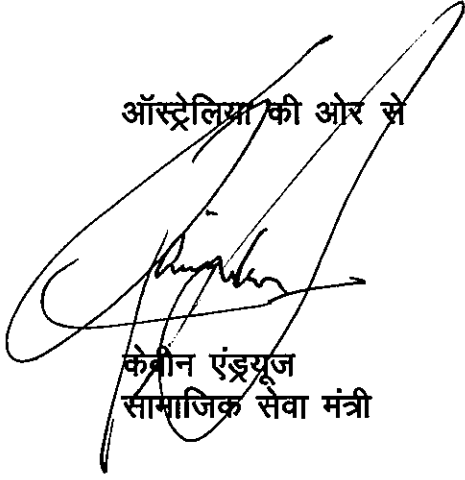 ऑस्ट्रेलिया की ओर से
केवीन एंड्रयूज
सामाजिक सेवा मंत्री